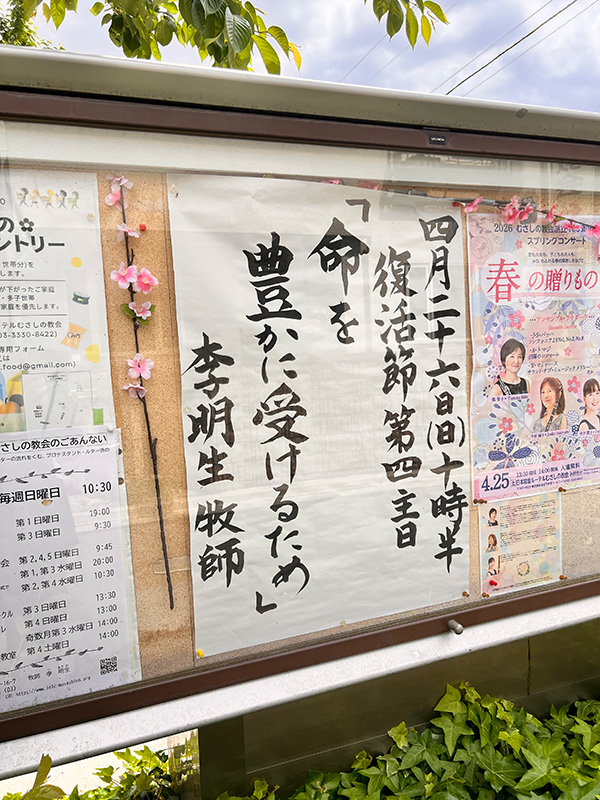 四月二十六日(日)十時半
復活節第四主日
「命を
豊かに受けるため」
李明生牧師
2026 むさしの教会
スプリングコンサート
春の贈りもの
4.25
入場無料
の
ントリー
世帯分)を
します。
が下がったご家庭
・多子世帯
家庭を優先します。
ーテルむさしの教会
03-3330-8422)
専用フォーム
.food@gmail.com)
さしの教会のごあんない
毎週日曜日 10:30
第1日曜日 19:00
第3日曜日 9:30
会 第2,4,5日曜日 9:45
第1,第3水曜日 20:00
第2,第4水曜日 10:30
第3日曜日 13:30
第4日曜日 13:00
奇数月第3水曜日 14:00
教室 第4土曜日 14:00
牧師 李 明生